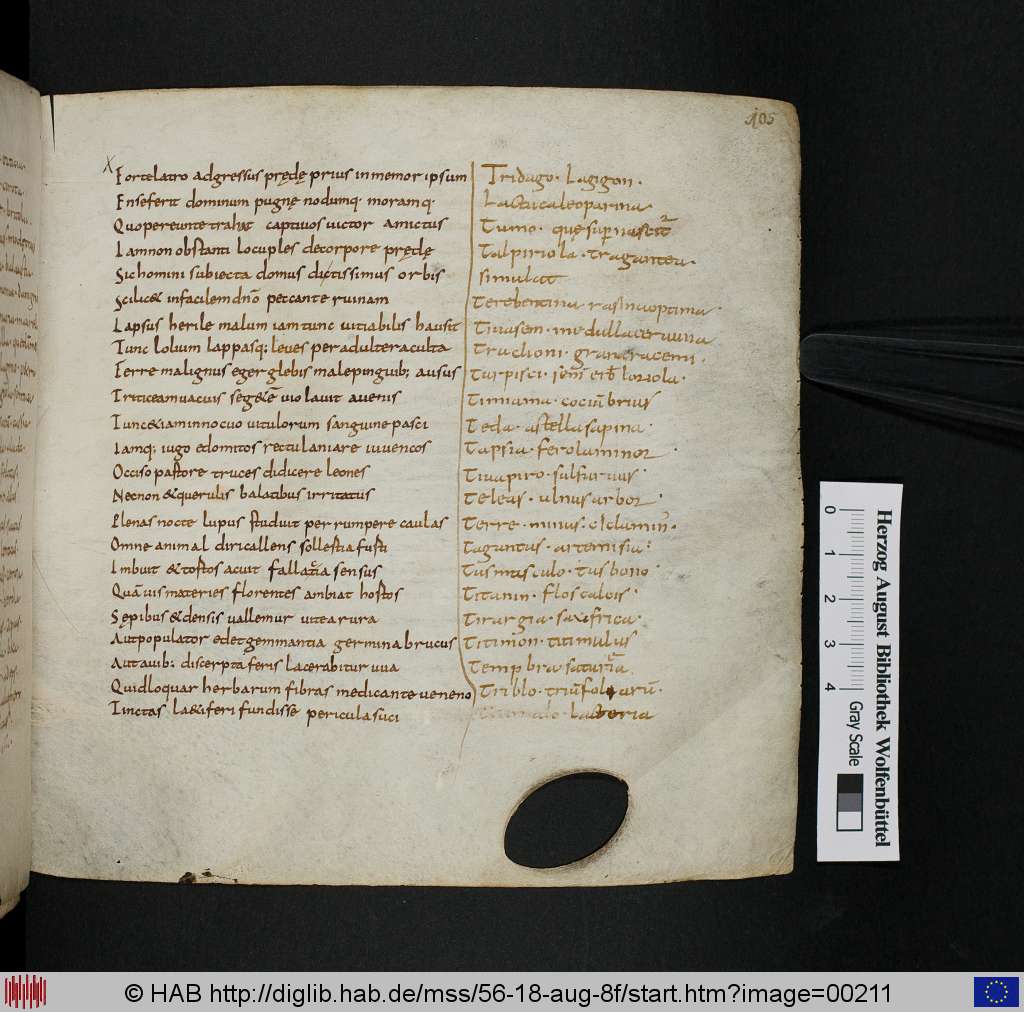 105
X
Fortelatro adgressus prędę prius inmemor ipsum
Enseferit dominum pugnę nodumq· moramq·
Quopereunte trahit captivos victor amictus
Iamnon obstanti locuples decorpore prędę
Sic homini subiecta domus dictissimus orbis
Scilic& infacilem dño peccante ruinam
Lapsus herile malum iamtunc vitiabilis hausit
Tunc lolium lappasq; leves per adultera culta
Ferre malignus eger glebis malepinguib; ausus
Triticeam vacuis seg&ē violavit avenis
Tunc&iam innocuo vitulorum sanguine pasci
Iamq; iugo edomitos rectulaniare iuvencos
Occiso pastore truces didicere leones
Necnon &querulis balatibus irritatus
Plenas nocte lupus studuit perrumpere caulas
Omne animal diri callens sollestia fusti
Imbuit &tostos acuit fallatia sensus
Quāvis materies florentes ambiat hostos
Sępibus &densis vallemur vitea rura
Aut populator edet gemmantia germina brucus
Aut avib; discerpta feris lacerabitur uva
Quid loquar herbarum fibras medicante veneno
Tinctas la&iferi fundisse pericula suci
Tridago· Lagigon·
Lactuca leoparina
Tumo· quę supnascit
Talpiriola· traganten·
simulat
Terebentina rasina optima·
Tivasem· medulla cervina
Truchoni· gran&racemi·
Turpisci· loriola·
Timiama· cociūbrius
Teda· astella sapina·
Tapsia· ferola minor
Tivapiro· sulfur vivs
Teleas· ulnus arbor·
Terre· minus: ciclamin·
Taguntus· artemisia·
Tus masculo· tus bono·
Titanin· flos calcis·
Tirargia· saxifrica·
Titimon· titimulus
Tempbra saturia·
Triblo· triūfoloarū·
lacteria
0 1 2 3 4
Gray Scale
Herzog August Bibliothek Wolfenbüttel
© HAB http://diglib.hab.de/mss/56-18-aug-8f/start.htm?image=00211